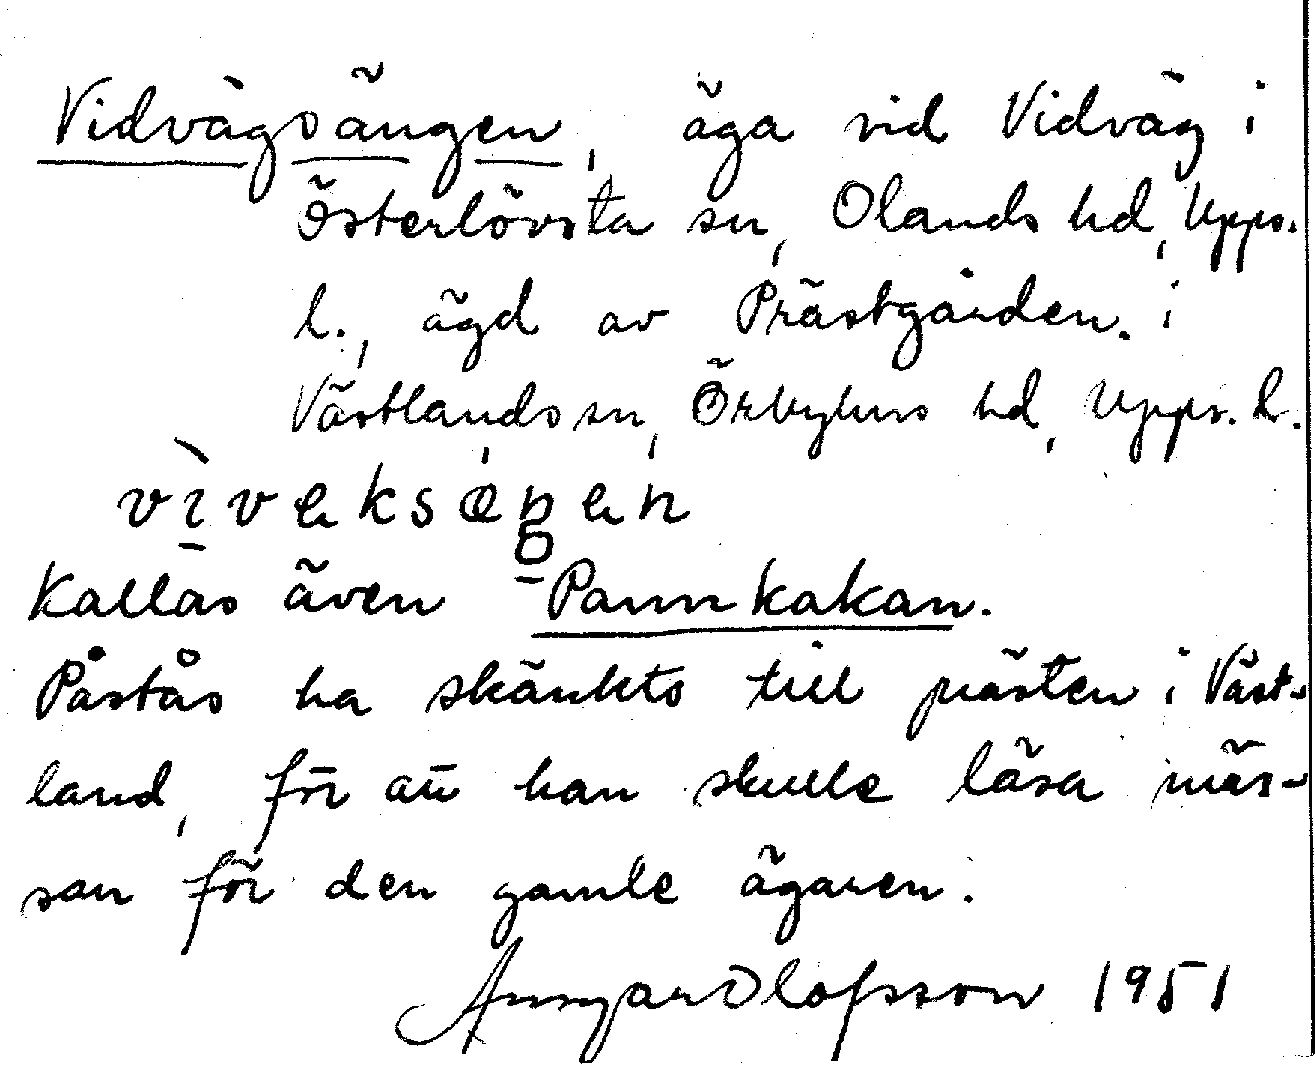 Vidvägsängen, äga vid Vidväg i
Österlövsta sn, Olands hd, Upps.
l., ägd av Prästgården i
Västlands sn, Örbyhus hd, Upps. l.
Kallas även Pannkakan.
Påstås ha skänkts till prästen i Väst-
land, för att han skulle läsa mäs-
san för den gamle ägaren.
Ansgar Olofsson 1951